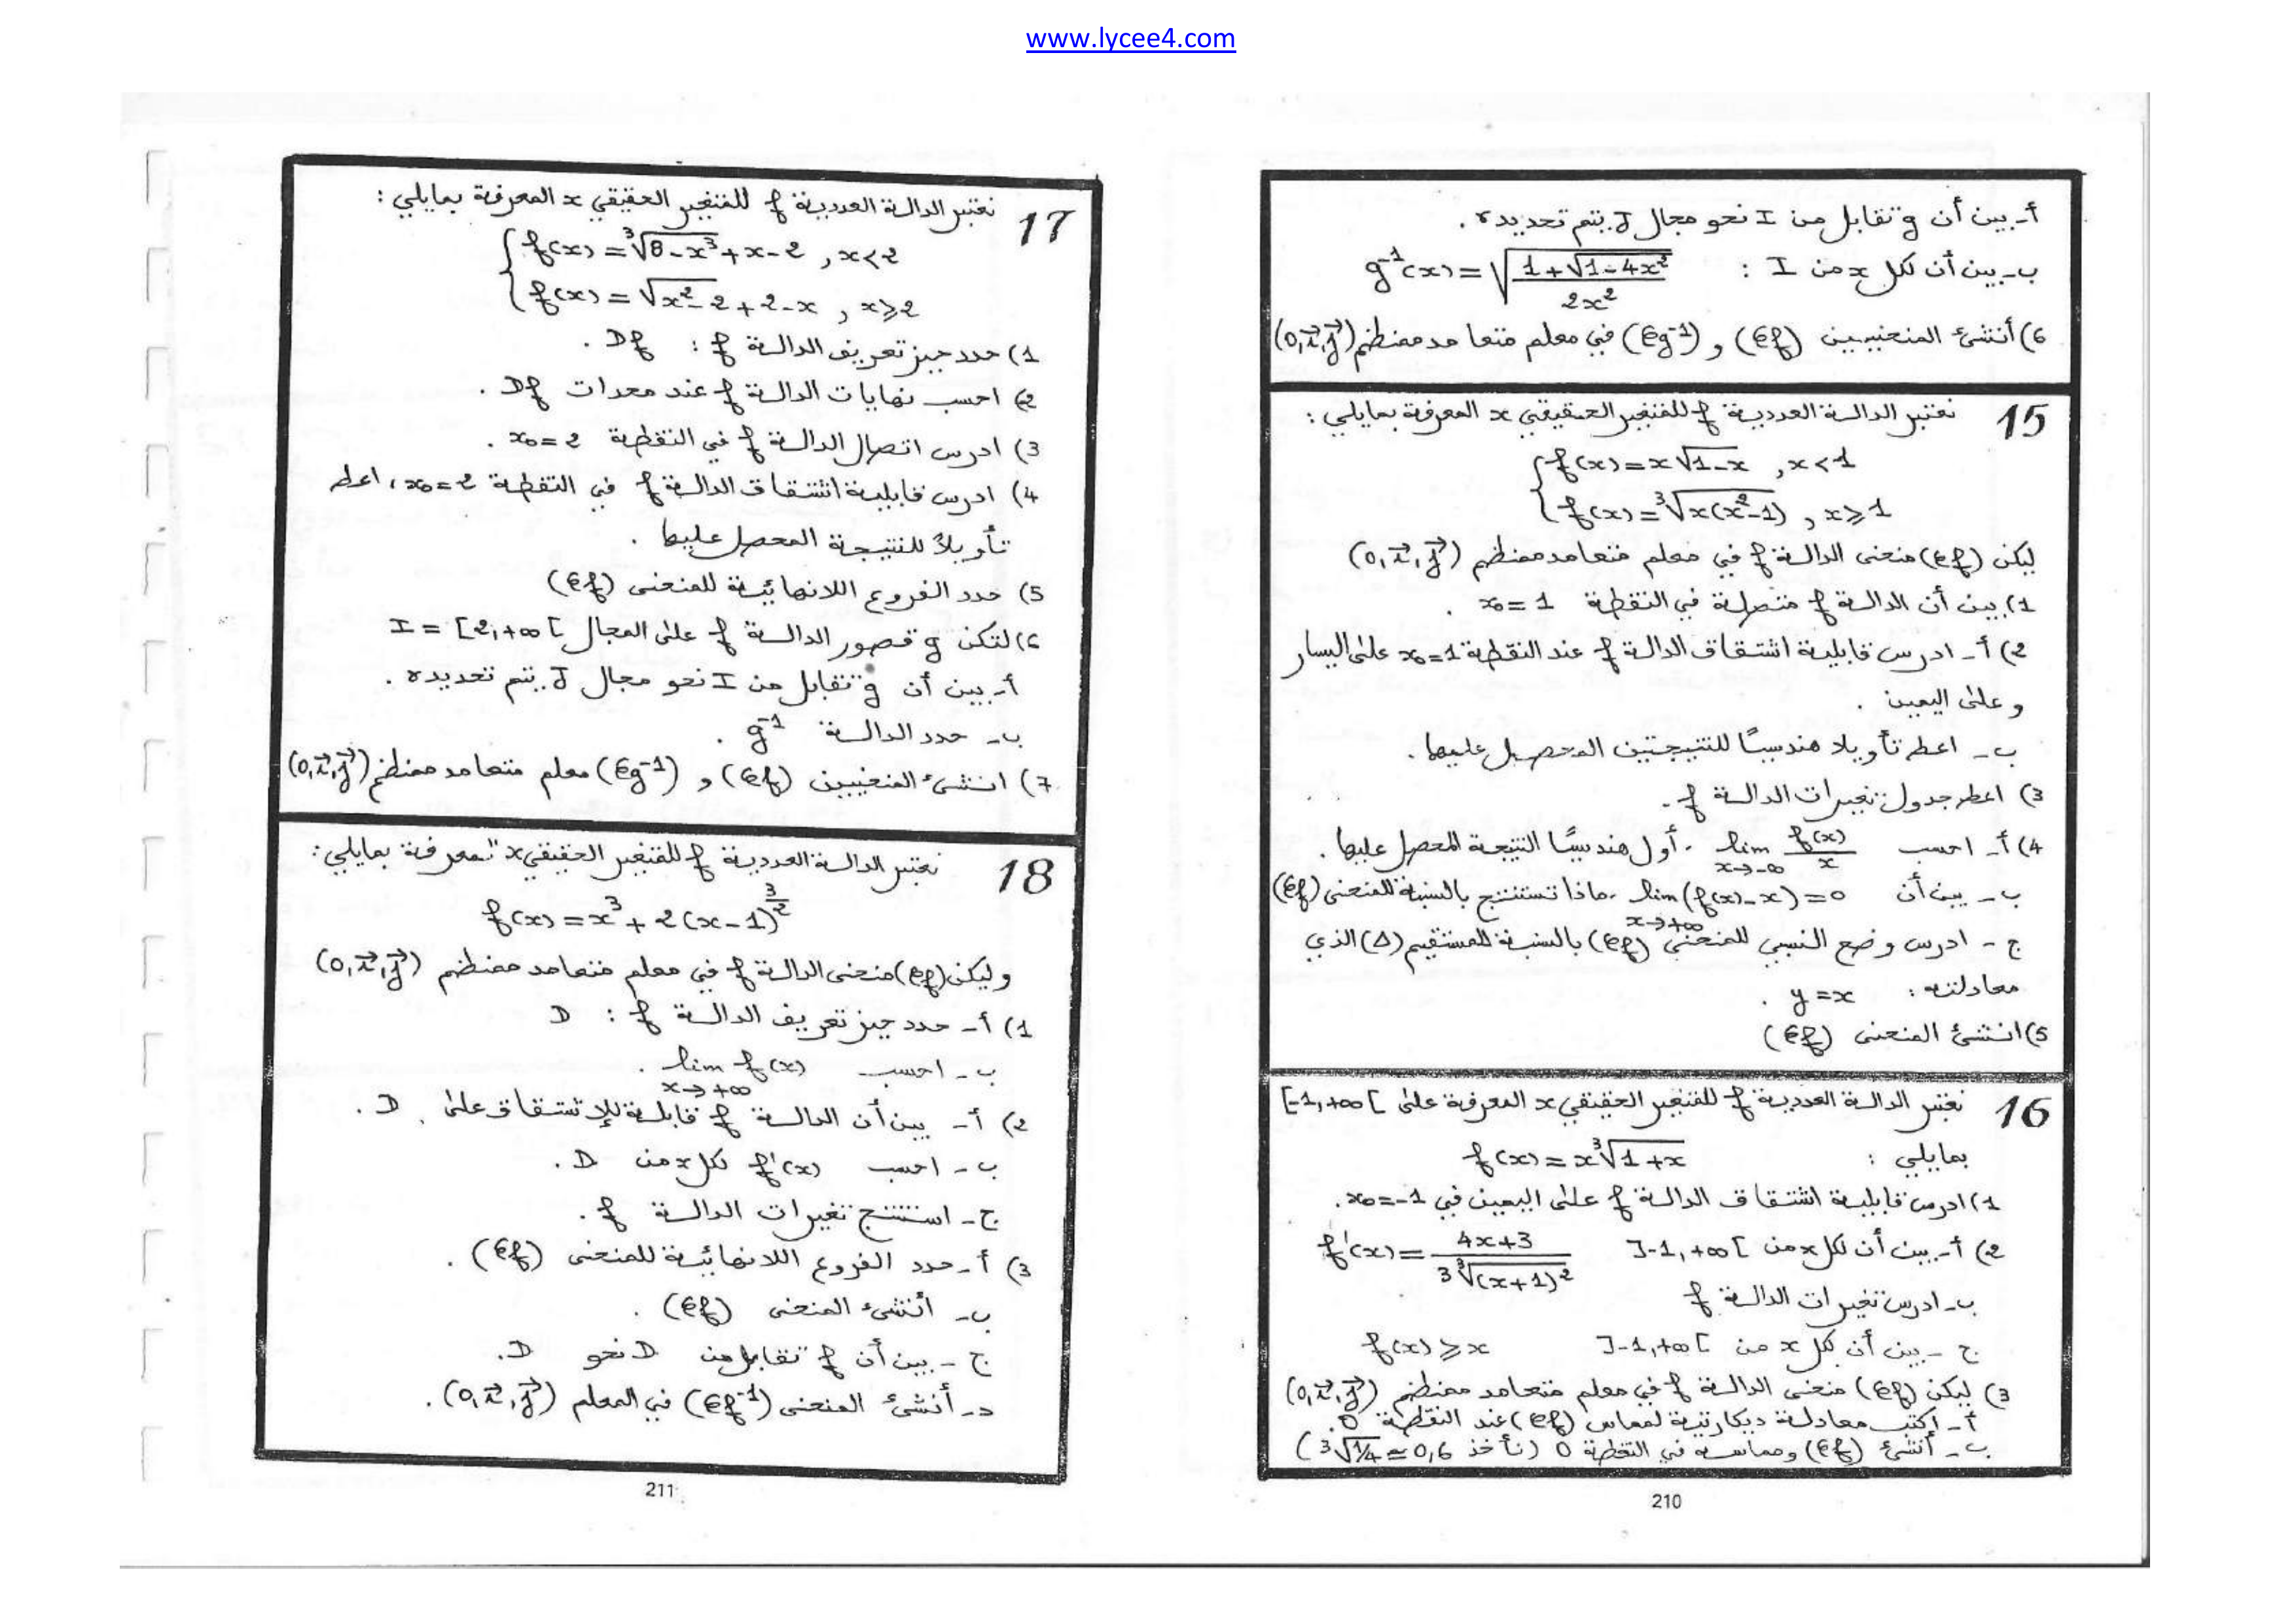 www.lycee4.com
أ- بين أن g تقابل من I نحو مجال J يتم تحديده.
ب- بين أن لكل x من I : g⁻¹(x) = √((1+√(1-4x²))/(2x²))
6) أنشئ المنحنيين (𝒞f) و (𝒞g⁻¹) في معلم متعامد ممنظم (o,i⃗,j⃗)
15 نعتبر الدالة العددية f للمتغير الحقيقي x المعرفة بمايلي :
f(x) = x√(1-x) , x<1
f(x) = ³√(x(x²-1)) , x⩾1
ليكن (𝒞f) منحنى الدالة f في معلم متعامد ممنظم (o,i⃗,j⃗)
1) بين أن الدالة f متصلة في النقطة x₀=1 .
2) أ- ادرس قابلية اشتقاق الدالة f عند النقطة x₀=1 على اليسار
و على اليمين .
ب- اعط تأويلا هندسيًا للنتيجتين المحصل عليها.
3) اعط جدول تغيرات الدالة f .
4) أ- احسب lim f(x)/x x→-∞ . أول هندسيًا النتيجة المحصل عليها.
ب- بين أن lim (f(x)-x)=0 x→+∞ . ماذا تستنتج بالنسبة للمنحنى (𝒞f)
ج- ادرس وضع النسبي للمنحنى (𝒞f) بالنسبة للمستقيم (Δ) الذي
معادلته : y=x .
5) انشئ المنحنى (𝒞f)
16 نعتبر الدالة العددية f للمتغير الحقيقي x المعرفة على [-1,+∞[
بمايلي : f(x) = x³√(1+x)
1) ادرس قابلية اشتقاق الدالة f على اليمين في x₀=-1.
2) أ- بين أن لكل x من ]-1,+∞[ f'(x) = (4x+3)/(3³√((x+1)²))
ب- ادرس تغيرات الدالة f
ج- بين أن لكل x من ]-1,+∞[ f(x)⩾x
3) ليكن (𝒞f) منحنى الدالة f في معلم متعامد ممنظم (o,i⃗,j⃗)
أ- اكتب معادلة ديكارتية لمماس (𝒞f) عند النقطة O.
ب- أنشئ (𝒞f) ومماسه في النقطة O (نأخذ ³√(1/4) ≃ 0,6)
210
17 نعتبر الدالة العددية f للمتغير الحقيقي x المعرفة بمايلي :
f(x) = ³√(8-x³)+x-2 , x<2
f(x) = √(x²-2)+2-x , x⩾2
1) حدد حيز تعريف الدالة f : Df .
2) احسب نهايات الدالة f عند محدات Df .
3) ادرس اتصال الدالة f في النقطة x₀=2 .
4) ادرس قابلية اشتقاق الدالة f في النقطة x₀=2 ، اعط
تأويلاً للنتيجة المحصل عليها .
5) حدد الفروع اللانهائية للمنحنى (𝒞f)
6) لتكن g قصور الدالة f على المجال I = [2,+∞[
أ- بين أن g تقابل من I نحو مجال J يتم تحديده .
ب- حدد الدالة g⁻¹ .
7) انشئ المنحنيين (𝒞f) و (𝒞g⁻¹) معلم متعامد ممنظم (o,i⃗,j⃗)
18 نعتبر الدالة العددية f للمتغير الحقيقي x المعرفة بمايلي :
f(x) = x³ + 2(x-1)^(3/2)
وليكن (𝒞f) منحنى الدالة f في معلم متعامد ممنظم (o,i⃗,j⃗)
1) أ- حدد حيز تعريف الدالة f : D
ب- احسب lim f(x) x→+∞ .
2) أ- بين أن الدالة f قابلة للإشتقاق على D .
ب- احسب f'(x) لكل x من D .
ج- استنتج تغيرات الدالة f .
3) أ- حدد الفروع اللانهائية للمنحنى (𝒞f) .
ب- أنشئ المنحنى (𝒞f) .
ج- بين أن f تقابل من D نحو D.
د- أنشئ المنحنى (𝒞f⁻¹) في المعلم (o,i⃗,j⃗).
211